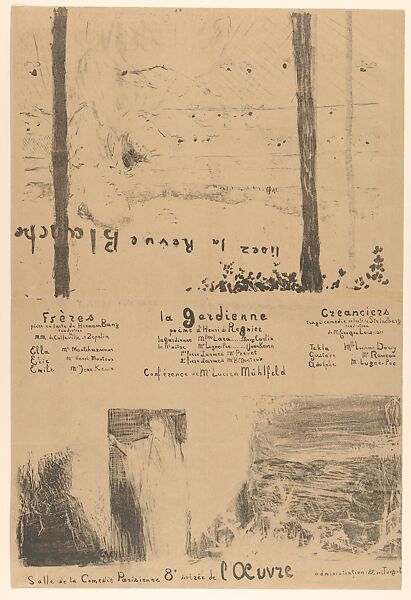 lisez la Revue Blanche
Frères
pièce en 1 acte de Herman Bang
traduction
MM. de Colleville et Zepelin
Ella
Eric
Emile Mr Jean Kemm
la Gardienne
poème d'Henri de Régnier
la Gardienne Mme Lara
le Maître Mr Lugné-Poe
Conférence de Mr Lucien Mühlfeld
Creanciers
tragi comédie
traduction
de Mr Georges Loiseau
Tekla Mlle Lucienne Dorsy
Gustave Mr Rameau
Adolphe Mr Lugné-Poe
Salle de la Comedie Parisienne 8e soirée de l'Œuvre
administration: 22 rue Turgot